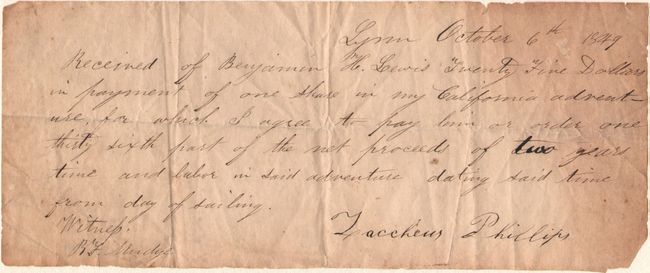 Lynn October 6th 1849
Received of Benjamin H. Lewis Twenty Five Dollars
in payment of one share in my California advent-
ure, for which I agree to pay him or order one
thirty sixth part of the net proceeds of two years
time and labor in said adventure dating said time
from day of sailing.
Witness.
B.F. Mudge
Zaccheus Phillips